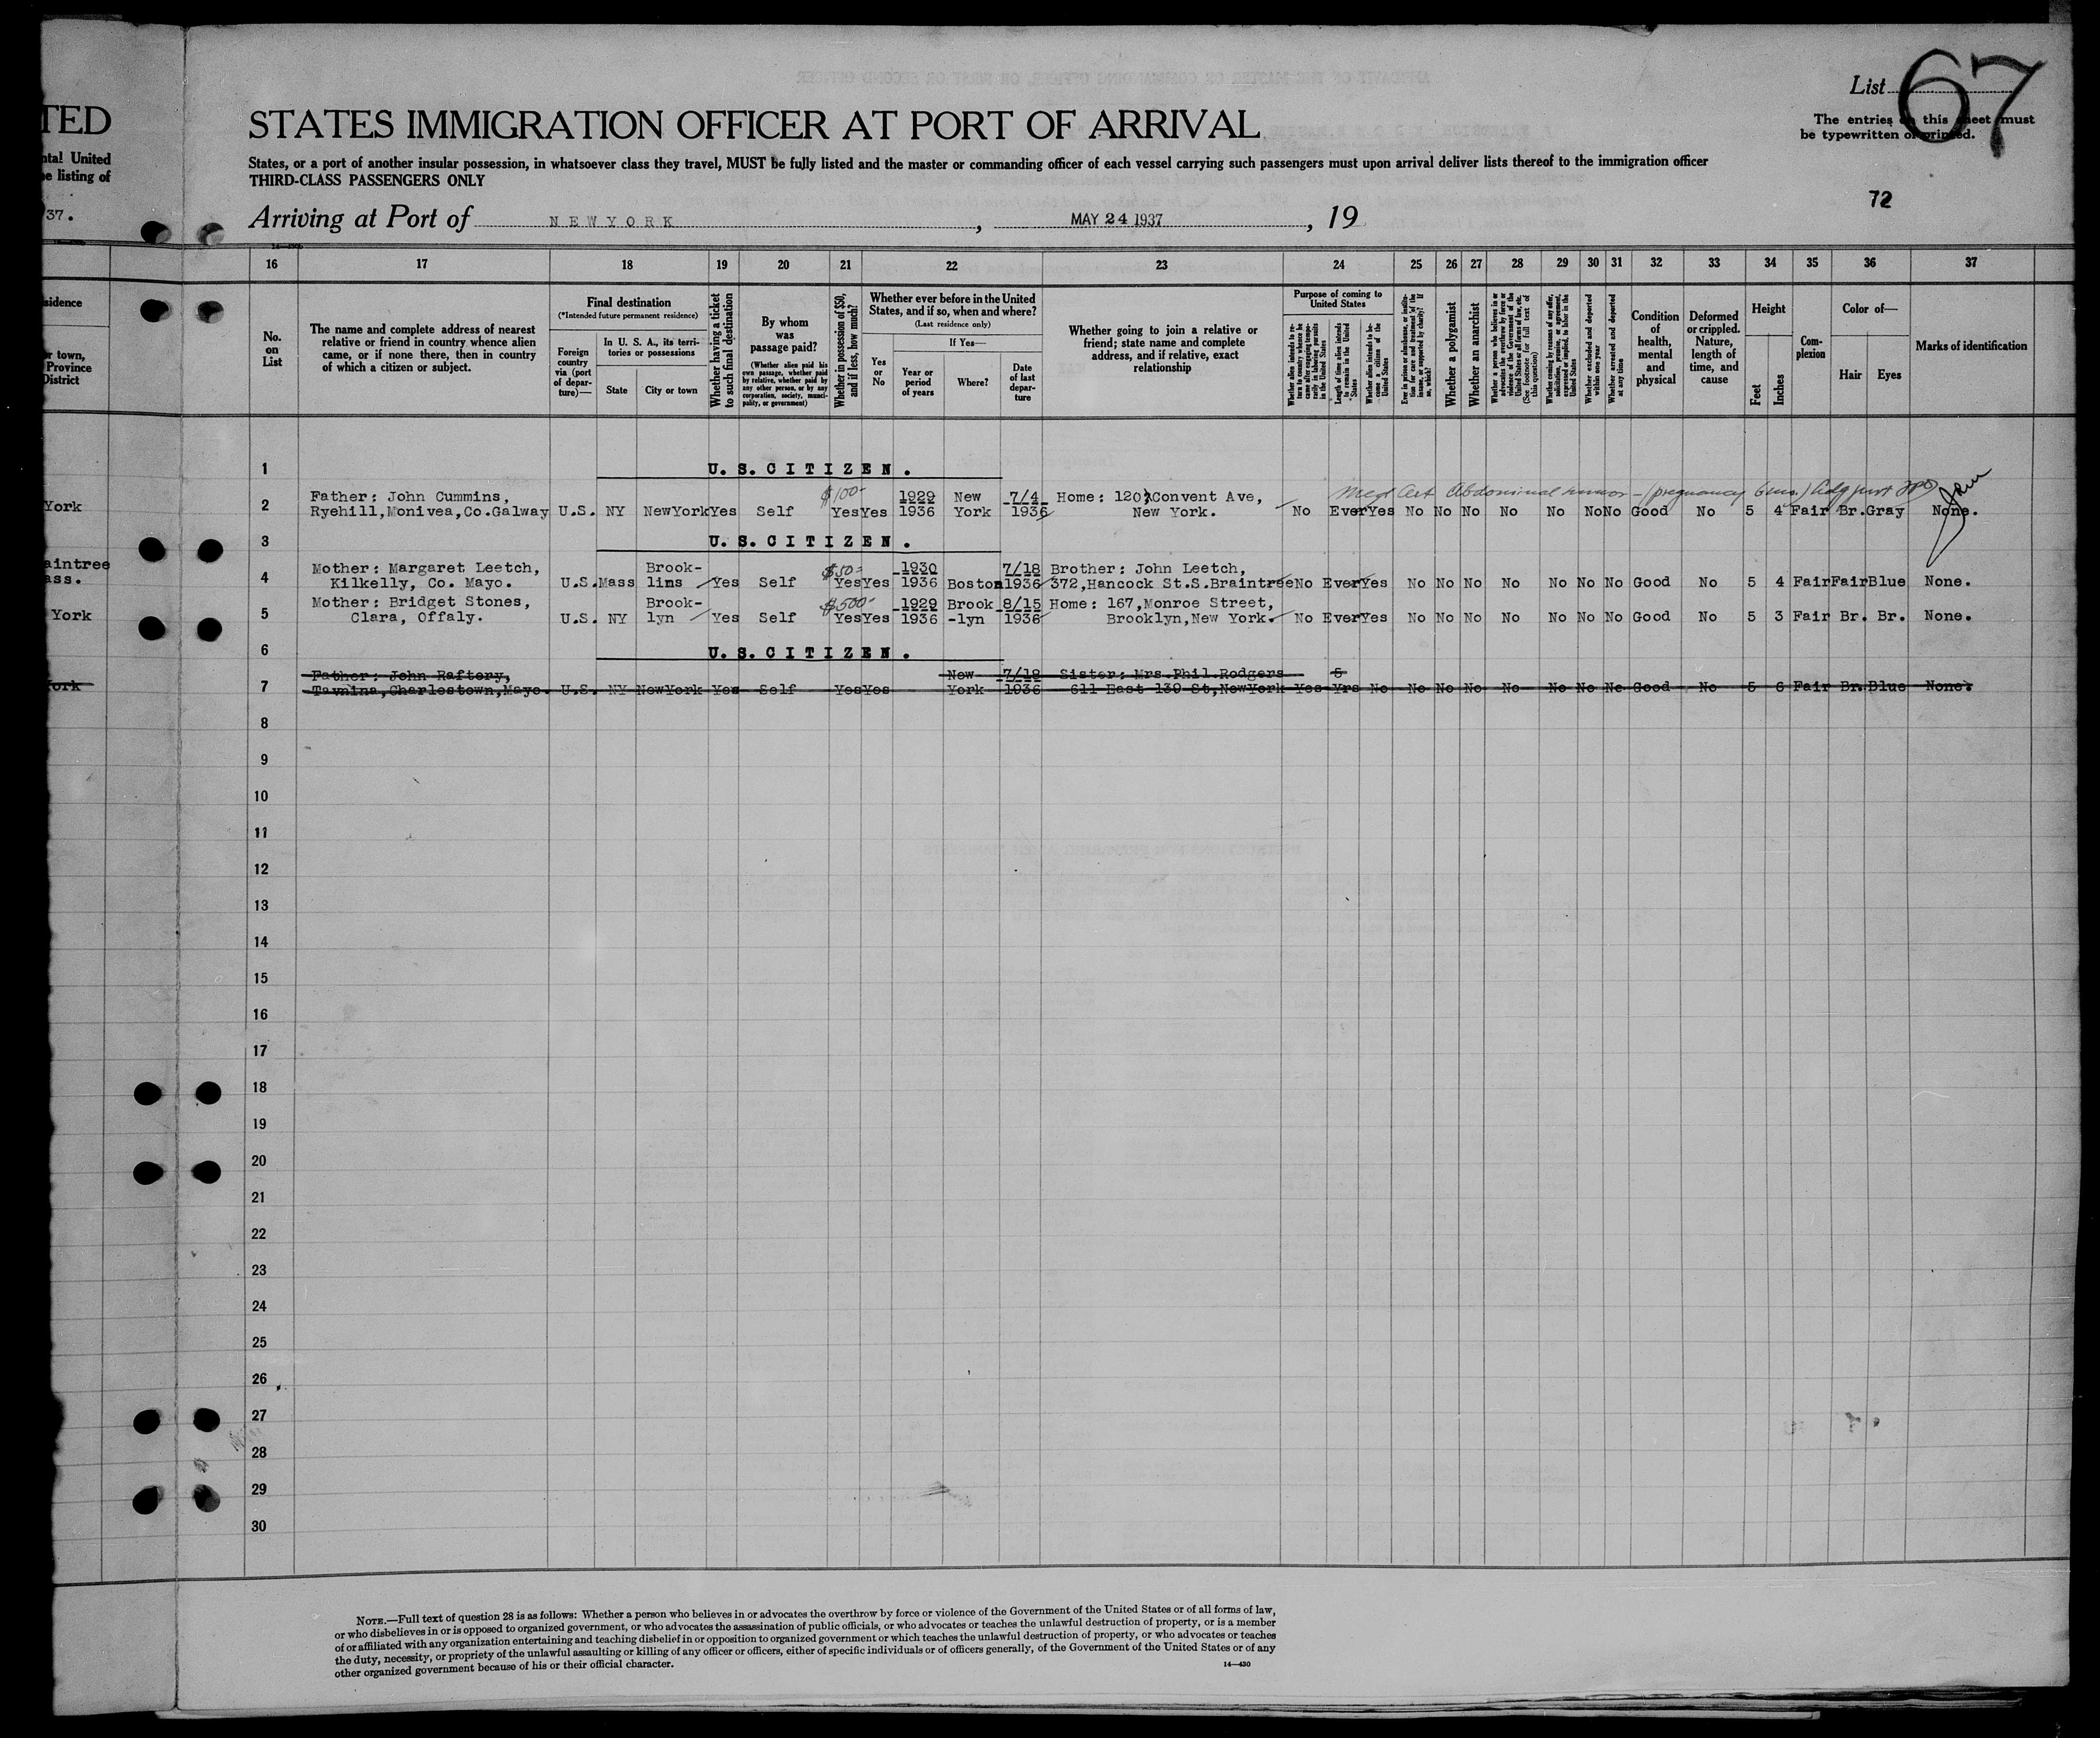 List 67
The entries on this sheet must
be typewritten or printed.
TED
STATES IMMIGRATION OFFICER AT PORT OF ARRIVAL
ntal United
e listing of
States, or a port of another insular possession, in whatsoever class they travel, MUST be fully listed and the master or commanding officer of each vessel carrying such passengers must upon arrival deliver lists thereof to the immigration officer
THIRD-CLASS PASSENGERS ONLY
72
37.
Arriving at Port of NEW YORK, MAY 24 1937, 19
16 17 18 19 20 21 22 23 24 25 26 27 28 29 30 31 32 33 34 35 36 37
sidence
r town,
Province
District
No. on List
The name and complete address of nearest relative or friend in country whence alien came, or if none there, then in country of which a citizen or subject.
Final destination
(*Intended future permanent residence)
Foreign country via (port of departure)—
In U. S. A., its territories or possessions
State
City or town
Whether having a ticket to such final destination
By whom was passage paid?
(Whether alien paid his own passage, whether paid by relative, whether paid by any other person, or by any corporation, society, municipality, or government)
Whether in possession of $50, and if less, how much?
Whether ever before in the United States, and if so, when and where?
(Last residence only)
Yes or No
If Yes—
Year or period of years
Where?
Date of last departure
Whether going to join a relative or friend; state name and complete address, and if relative, exact relationship
Purpose of coming to United States
Length of time alien intends to remain in the United States
Whether alien intends to become a citizen of the United States
Whether a polygamist
Whether an anarchist
(See footnote for full text of this question)
Whether excluded and deported within one year
Whether arrested and deported at any time
Condition of health, mental and physical
Deformed or crippled. Nature, length of time, and cause
Height
Feet
Inches
Complexion
Color of—
Hair
Eyes
Marks of identification
1 U. S. CITIZEN.
$100- Med Cert Abdominal tumor - (pregnancy 6 ms.)
Father: John Cummins, 1929 New 7/4 Home: 120 Convent Ave,
York 2 Ryehill,Monivea,Co.Galway U.S. NY NewYork Yes Self Yes Yes 1936 York 1936 New York. No Ever Yes No No No No No No No Good No 5 4 Fair Br. Gray None.
3 U. S. CITIZEN.
aintree Mother: Margaret Leetch, Brook- $50- 1930 7/18 Brother: John Leetch,
ass. 4 Kilkelly, Co. Mayo. U.S. Mass lins Yes Self Yes Yes 1936 Boston 1936 372,Hancock St.S.Braintree No Ever Yes No No No No No No No Good No 5 4 Fair Fair Blue None.
Mother: Bridget Stones, Brook- $500- 1929 Brook 8/15 Home: 167,Monroe Street,
York 5 Clara, Offaly. U.S. NY lyn Yes Self Yes Yes 1936 -lyn 1936 Brooklyn,New York. No Ever Yes No No No No No No No Good No 5 3 Fair Br. Br. None.
6 U. S. CITIZEN.
Father: John Raftery, New 7/18 Sister: Mrs.Phil.Rodgers 5
York 7 Charlestown,Mayo. U.S. NY NewYork Yes Self Yes Yes York 1936 611 East 139 St,NewYork Yes Yrs No No No No No No No No Good No 5 6 Fair Br. Blue None.
8
9
10
11
12
13
14
15
16
17
18
19
20
21
22
23
24
25
26
27
28
29
30
NOTE.—Full text of question 28 is as follows: Whether a person who believes in or advocates the overthrow by force or violence of the Government of the United States or of all forms of law,
or who disbelieves in or is opposed to organized government, or who advocates the assassination of public officials, or who advocates or teaches the unlawful destruction of property, or is a member
of or affiliated with any organization entertaining and teaching disbelief in or opposition to organized government or which teaches the unlawful destruction of property, or who advocates or teaches
the duty, necessity, or propriety of the unlawful assaulting or killing of any officer or officers, either of specific individuals or of officers generally, of the Government of the United States or of any
other organized government because of his or their official character.
14—430